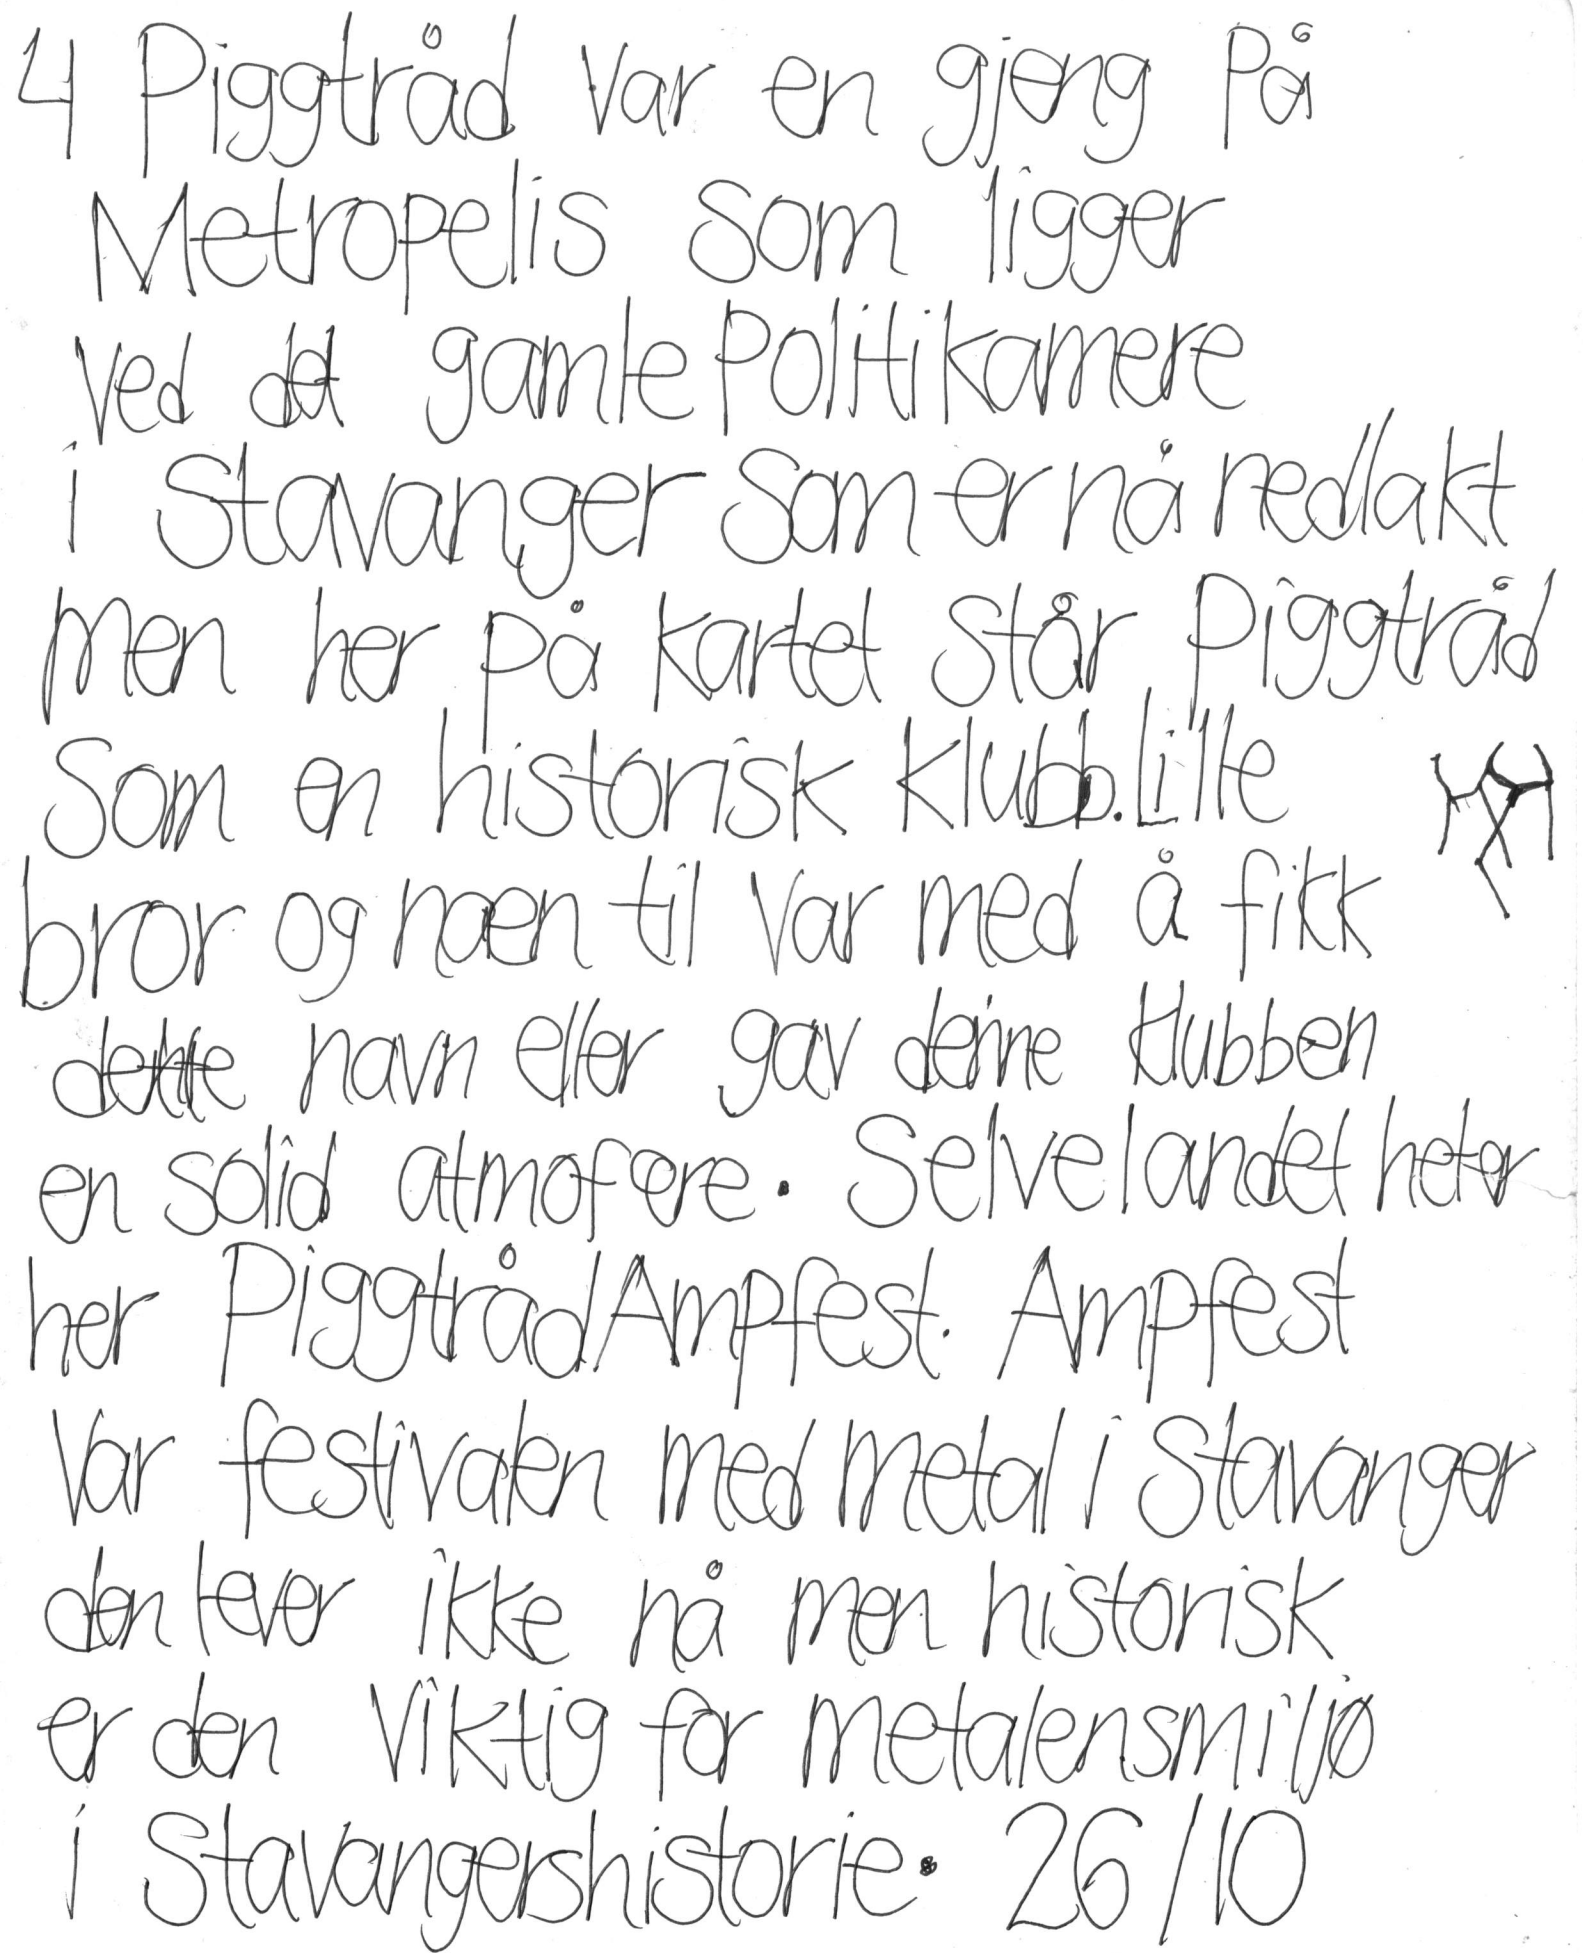 4 Piggtråd var en gjeng på
Metropelis som ligger
ved det gamle Politikamere
i Stavanger som er nå nedlakt
men her på kartet står Piggtråd
som en historisk klubb. Lille
bror og noen til var med å fikk
dette navn eller gav denne klubben
en solid atmofære. Selve landet heter
her Piggtråd Ampfest. Ampfest
var festivalen med metal i Stavanger
den lever ikke nå men historisk
er den viktig for metalensmiljø
i Stavangershistorie. 26/10